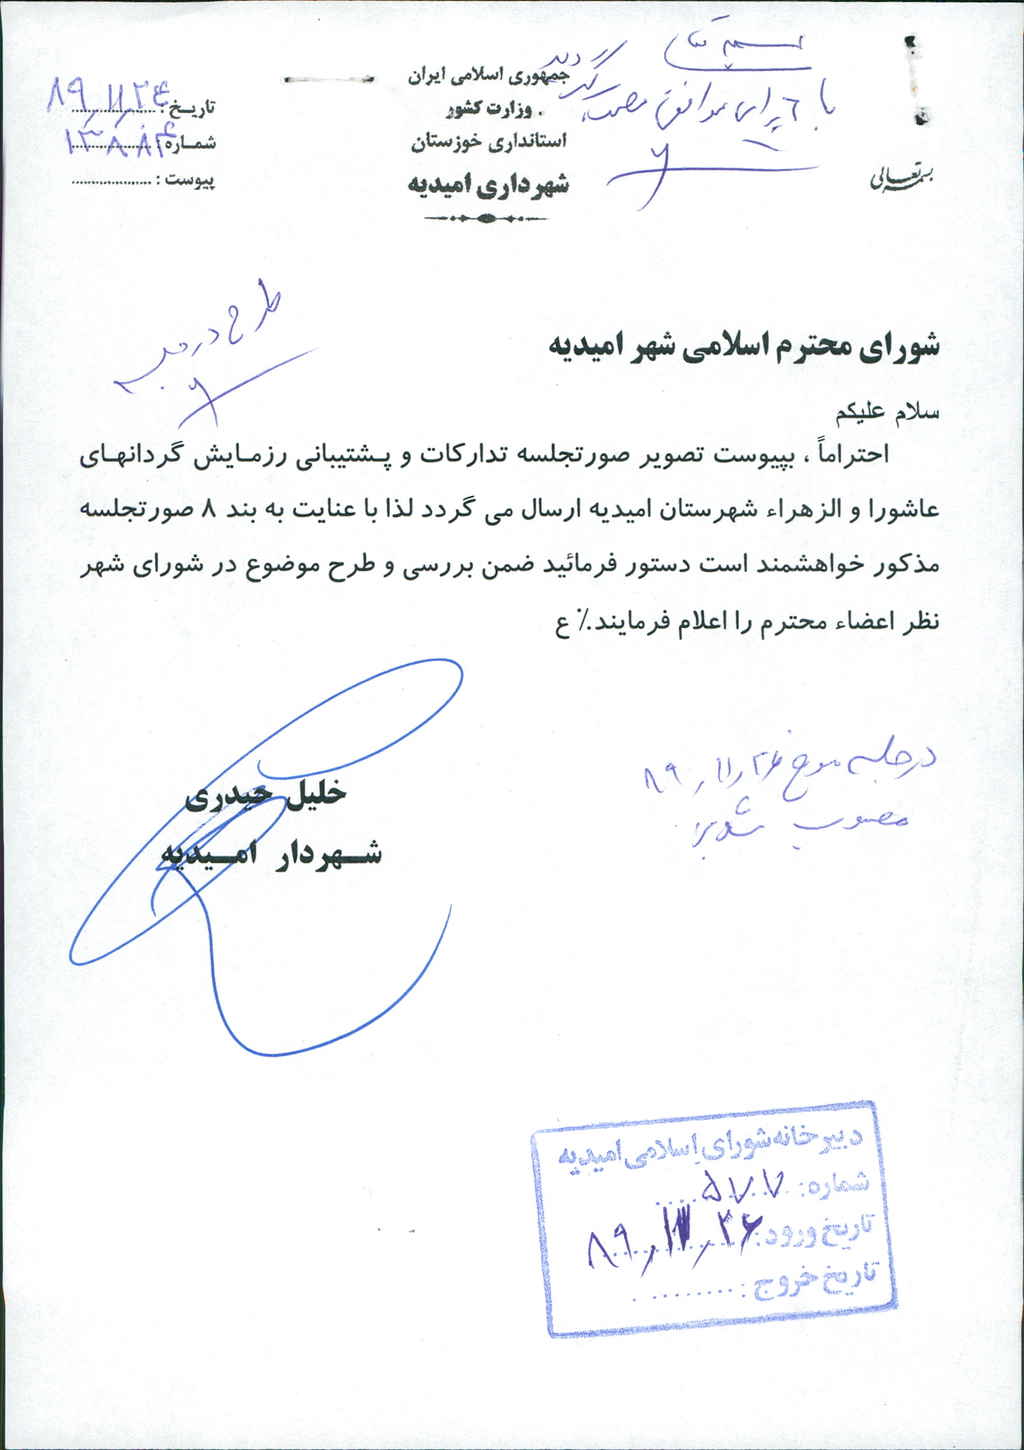 بسمه تعالی
با ۶ رای موافق مصوب گردید
جمهوری اسلامی ایران
وزارت کشور
استانداری خوزستان
شهرداری امیدیه
بسمه تعالی
تاریخ : ۸۹/۱۱/۲۴
شماره : ۱۳۸۸۴
پیوست :
طرح در جلسه
شورای محترم اسلامی شهر امیدیه
سلام علیکم
احتراماً ، بپیوست تصویر صورتجلسه تدارکات و پشتیبانی رزمایش گردانهای
عاشورا و الزهراء شهرستان امیدیه ارسال می گردد لذا با عنایت به بند ۸ صورتجلسه
مذکور خواهشمند است دستور فرمائید ضمن بررسی و طرح موضوع در شورای شهر
نظر اعضاء محترم را اعلام فرمایند.٪ ع
خلیل حیدری
شهردار امیدیه
در جلسه مورخ ۸۹/۱۱/۲۶
مصوب
دبیرخانه شورای اسلامی امیدیه
شماره: ۵۷۷
تاریخ ورود: ۸۹/۱۱/۲۶
تاریخ خروج :